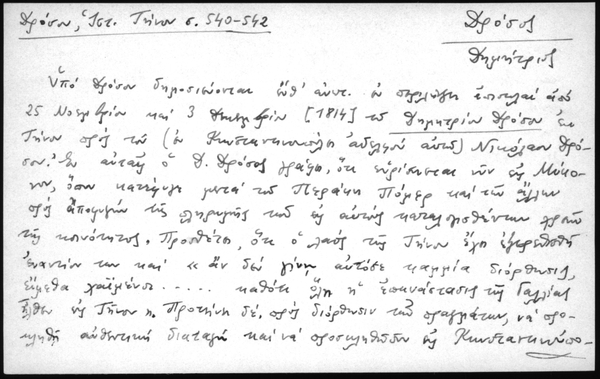 Δρόσου, Ἱστ. Τήνου σ. 540-542
Δρόσος
Δημήτριος
Ὑπὸ Δρόσου δημοσιεύονται ὑπ' ἀντ. ἐν περιλήψει ἐπιστολαὶ ἀπὸ
25 Νοεμβρίου καὶ 3 Δεκεμβρίου [1814] τοῦ Δημητρίου Δρόσου ἐκ
Τήνου πρὸς τὸν (ἐν Κωνσταντινουπόλει ἀδελφόν αὐτοῦ) Νικόλαον Δρό-
σον. Ἐν αὐταῖς ὁ Δ. Δρόσος γράφει, ὅτι εὑρίσκεται νῦν εἰς Μύκο-
νον, ὅπου κατέφυγε μετὰ τοῦ Περάκη Πώμερ καὶ τῶν ἄλλων
πρὸς ἀποφυγὴν τῆς πληρωμῆς τῶν εἰς αὐτοὺς καταλογισθέντων χρεῶν
τῆς κοινότητος. Προσθέτει, ὅτι ὁ λαὸς τῆς Τήνου ἔχει ἐξεγερθῆ
ἐναντίον των καὶ « ἂν δὲν γίνῃ αὐτόσε καμμία διόρθωσις,
εἴμεθα χαϊμένοι ..... καθότι ὅλη ἡ ἐπανάστασις τῆς Γαλλίας
ἦλθεν εἰς Τῆνον ». Προτείνει δέ, πρὸς διόρθωσιν τῶν πραγμάτων, νὰ προ-
κληθῇ αὐθεντικὴ διαταγὴ καὶ νὰ προσκληθῶσιν εἰς Κωνσταντινούπο-